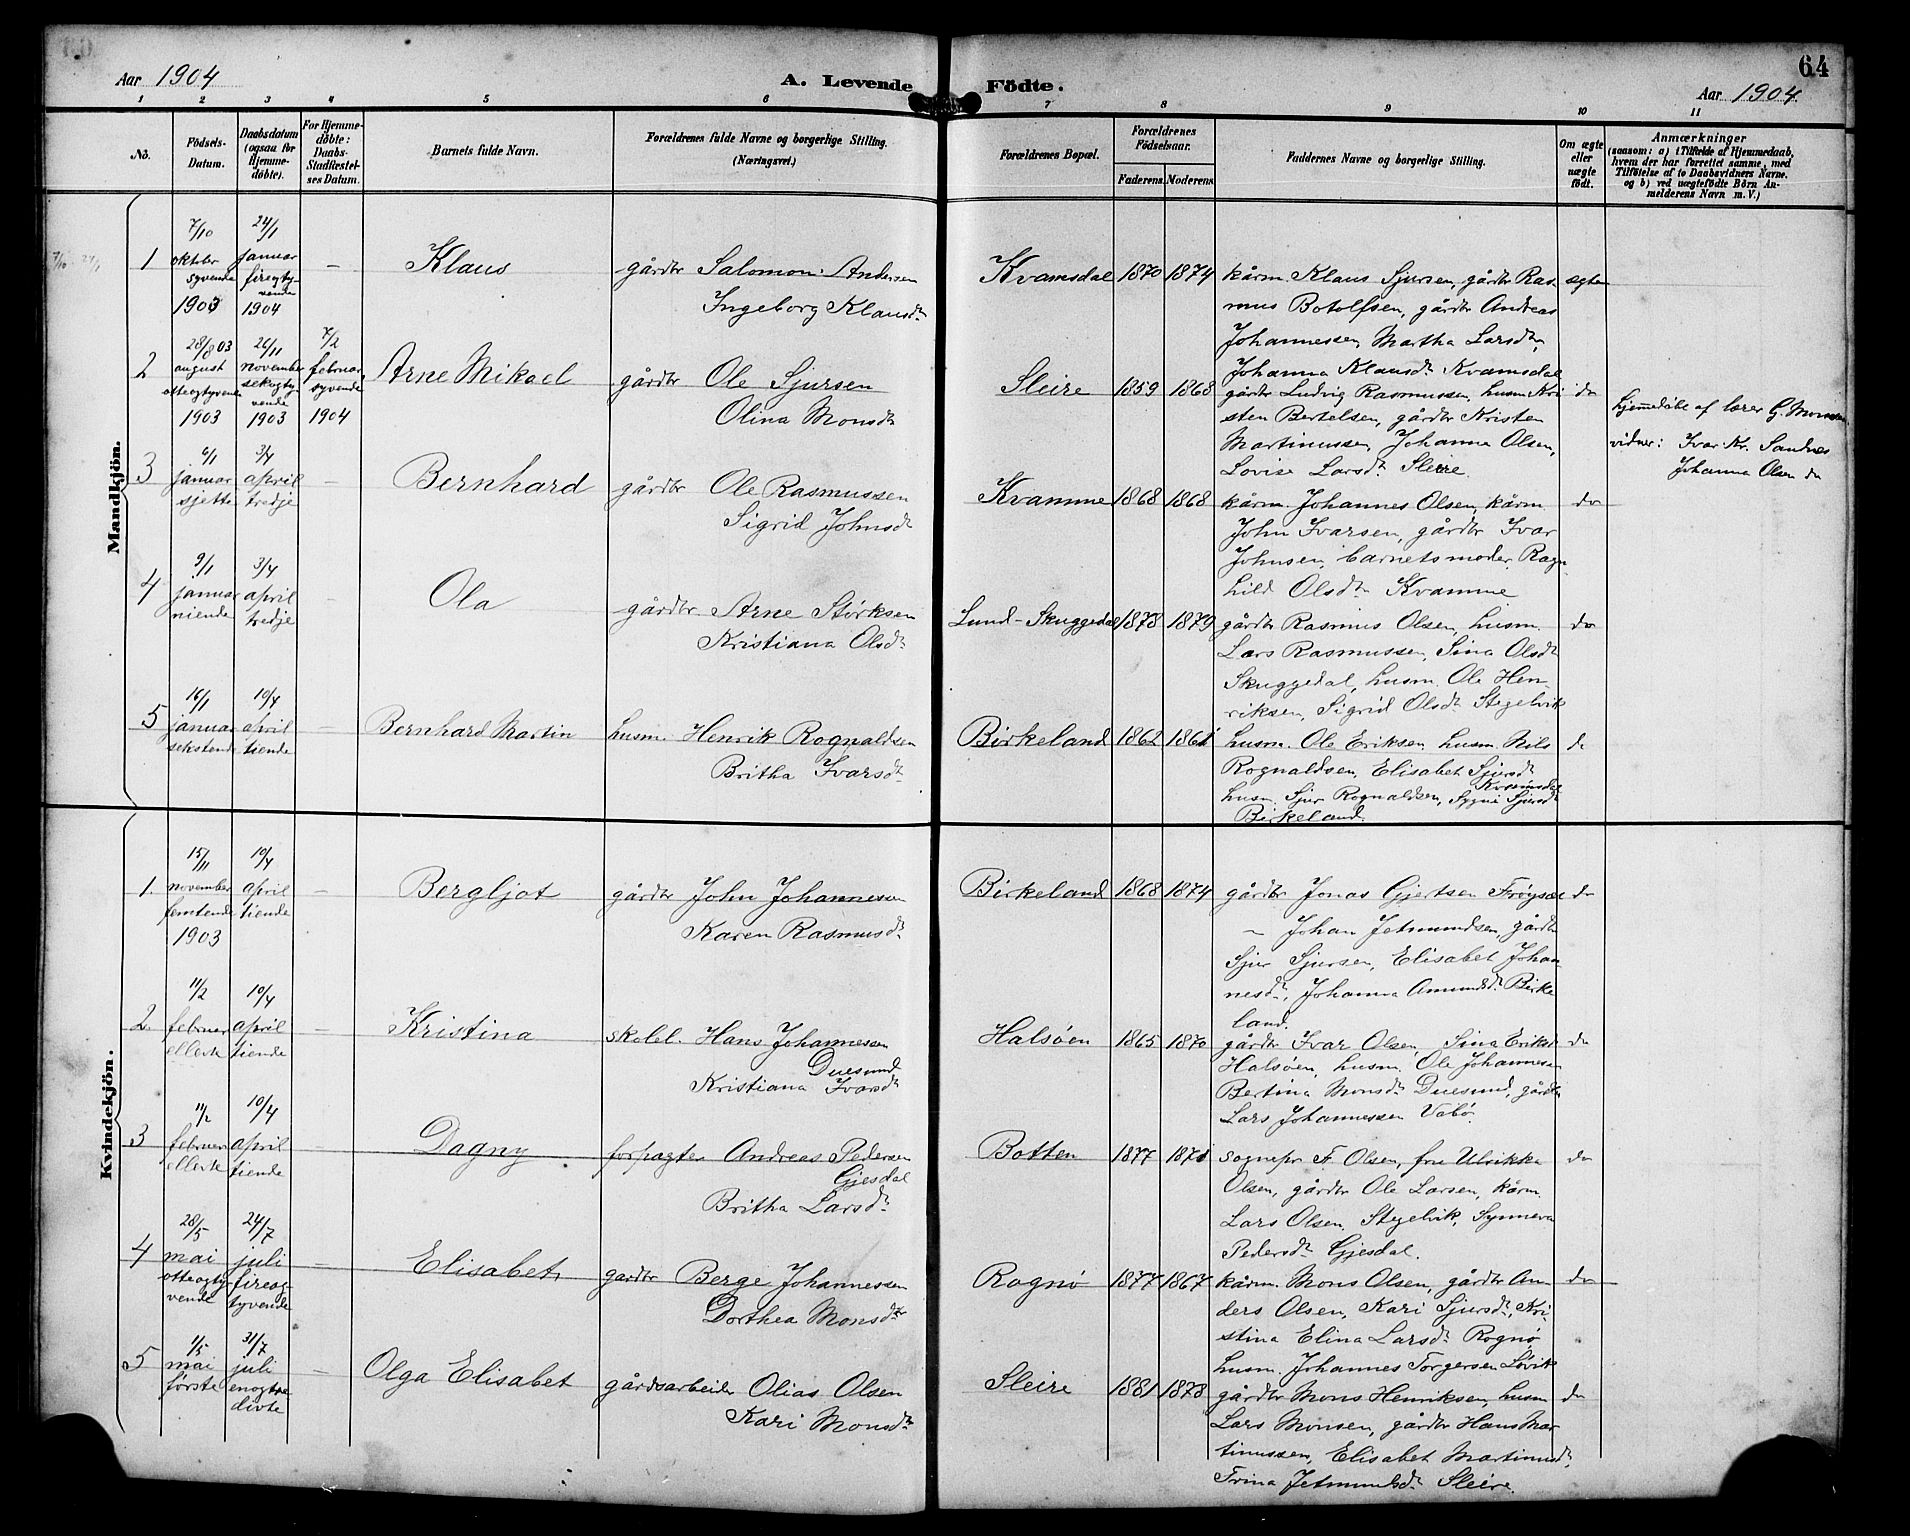 Aar 1904
A. Levende Födte.
Aar 1904.
64
1 2 3 4 5 6 7 8 9 10 11
No.
Födsels-Datum.
Daabsdatum (ogsaa for Hjemmedöbte).
For Hjemmedöbte: Daabs-Stadfæstelses Datum.
Barnets fulde Navn.
Forældrenes fulde Navne og borgerlige Stilling.
(Næringsvei.)
Forældrenes Bopæl.
Forældrenes Födselsaar.
Faderens. Moderens.
Faddernes Navne og borgerlige Stilling.
Om ægte eller uægte födt.
Anmærkninger
(saasom: a) i Tilfælde af Hjemmedaab,
hvem der har forrettet samme, med
Tilföielse af to Daabsvidners Navne.
og b) ved uægtefödte Börn An-
melderens Navn m. V.)
Mandkjön.
1 7/10 oktober syvende 1903 24/1 januar fireogtyvende 1904 - Klaus
gårdbr Salomon Andersen
Ingeborg Klausdt
Kvamsdal 1870 1874
kårm. Klaus Sjursen, gårdbr Ras-
mus Botolfsen, gårdbr Andreas
Johannessen, Martha Larsdt,
Johanna Klausdt Kvamsdal
ægte
2 28/8 03 august otteogtyvende 1903 26/11 november seksogtyvende 1903 7/2 februar syvende 1904 Arne Mikael
gårdbr Ole Sjursen
Olina Monsdt
Sleire 1859 1868
gårdbr Ludvig Rasmussen, husm Kri
sten Bertelsen, gårdbr Kristen
Martinussen, Johanna Olsen,
Lovise Larsdt Sleire.
do
Hjemmedøbt af lærer G. Monsen
vidner: Ivar Kr. Sandnes
Johanna Olsen do
3 6/1 januar sjette 3/4 april tredje - Bernhard
gårdbr Ole Rasmussen
Sigrid Johnsdt
Kvamme 1868 1868
kårm. Johannes Olsen, kårm
John Ivarsen, gårdbr Ivar
Johnsen, barnets moder, Ragn-
hild Olsdt Kvamme
do
4 9/1 januar niende 3/4 april tredje - Ola
gårdbr Arne Størksen
Kristiana Olsdt
Lund-Skuggedal 1878 1879
gårdbr Rasmus Olsen, husm.
Lars Rasmussen, Sina Olsdt
Skuggedal, husm. Ole Hen-
riksen, Sigrid Olsdt Stegelvik
do
5 16/1 januar sekstende 10/4 april tiende - Bernhard Martin
husm. Henrik Rognaldsen
Britha Ivarsdt
Birkeland 1862 1861
husm. Ole Eriksen, husm. Nils
Rognaldsen, Elisabet Sjursdt
Kvamsdal
husm. Sjur Rognaldsen, Sygni Sjursdt
Birkeland.
do
Kvindekjön.
1. 15/11 november femtende 1903 10/4 april tiende - Bergljot
gårdbr John Johannessen
Karen Rasmusdt
Birkeland 1868 1874
gårdbr Jonas Gjertsen Frøyset
" Johan Jetmundsen, gårdbr
Sjur Sjursen, Elisabet Johan-
nesdt, Johanna Amundsdt Birke
land.
do
2. 11/2 februar ellevte 10/4 april tiende - Kristina
skolel. Hans Johannessen
Duesund
Kristiana Ivarsdt
Halsøen 1865 1870
gårdbr Ivar Olsen Sina Eriksd
Halsøen, husm. Ole Johannesen
Bertina Monsdt Duesund, gårdbr
Lars Johannessen Vabø.
do
3 11/2 februar ellevte 10/4 april tiende - Dagny
forpagter Andreas Pedersen
Gjesdal
Britha Larsdt
Botten 1877 1871
sognepr F. Olsen, fru Ulrikka
Olsen, gårdbr Ole Larsen, kårm.
Lars Olsen, Stegelvik, Synneva
Pedersdt Gjesdal.
do
4 28/5 mai otteogtyvende 24/7 juli fireogtyvende - Elisabet
gardbr Berge Johannessen
Dorthea Monsdt
Rognø 1877 1867
kårm. Mons Olsen, gårdbr An-
ders Olsen, Kari Sjursdt, Kri-
stina Elina Larsdt Rognø,
husm. Johannes Torgersen Løvik
do
5 1/5 mai første 31/7 juli enogtredivte - Olga Elisabet
gårdsarbeider Olias Olsen
Kari Monsdt
Sleire 1881 1878
gårdbr Mons Henriksen, husm
Lars Monsen, gårdbr Hans Mar
tinussen, Elisabet Martinusdt,
Trina Jetmundsdt Sleire.
do